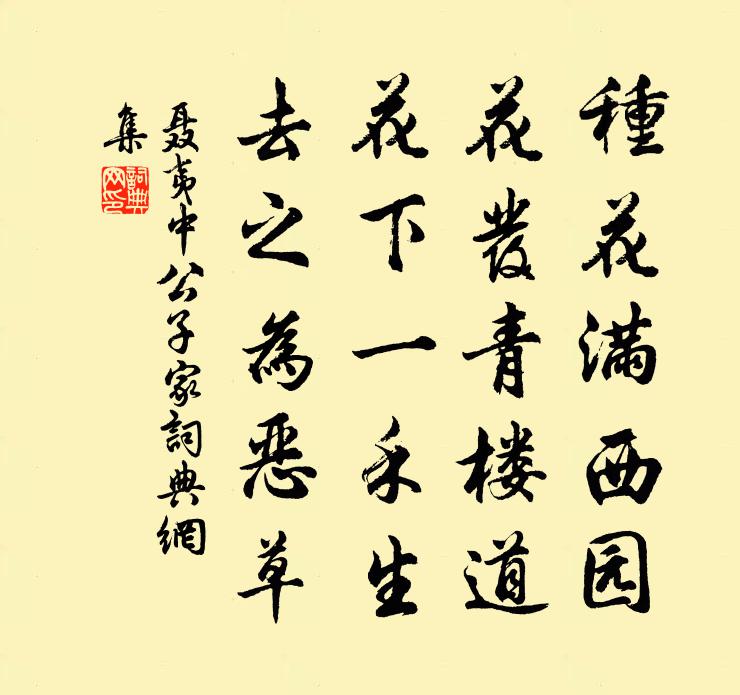 種花满西园
花發青楼道
花下一禾生
去之為恶草
聂夷中公子家詞典網
集
詞典
网印